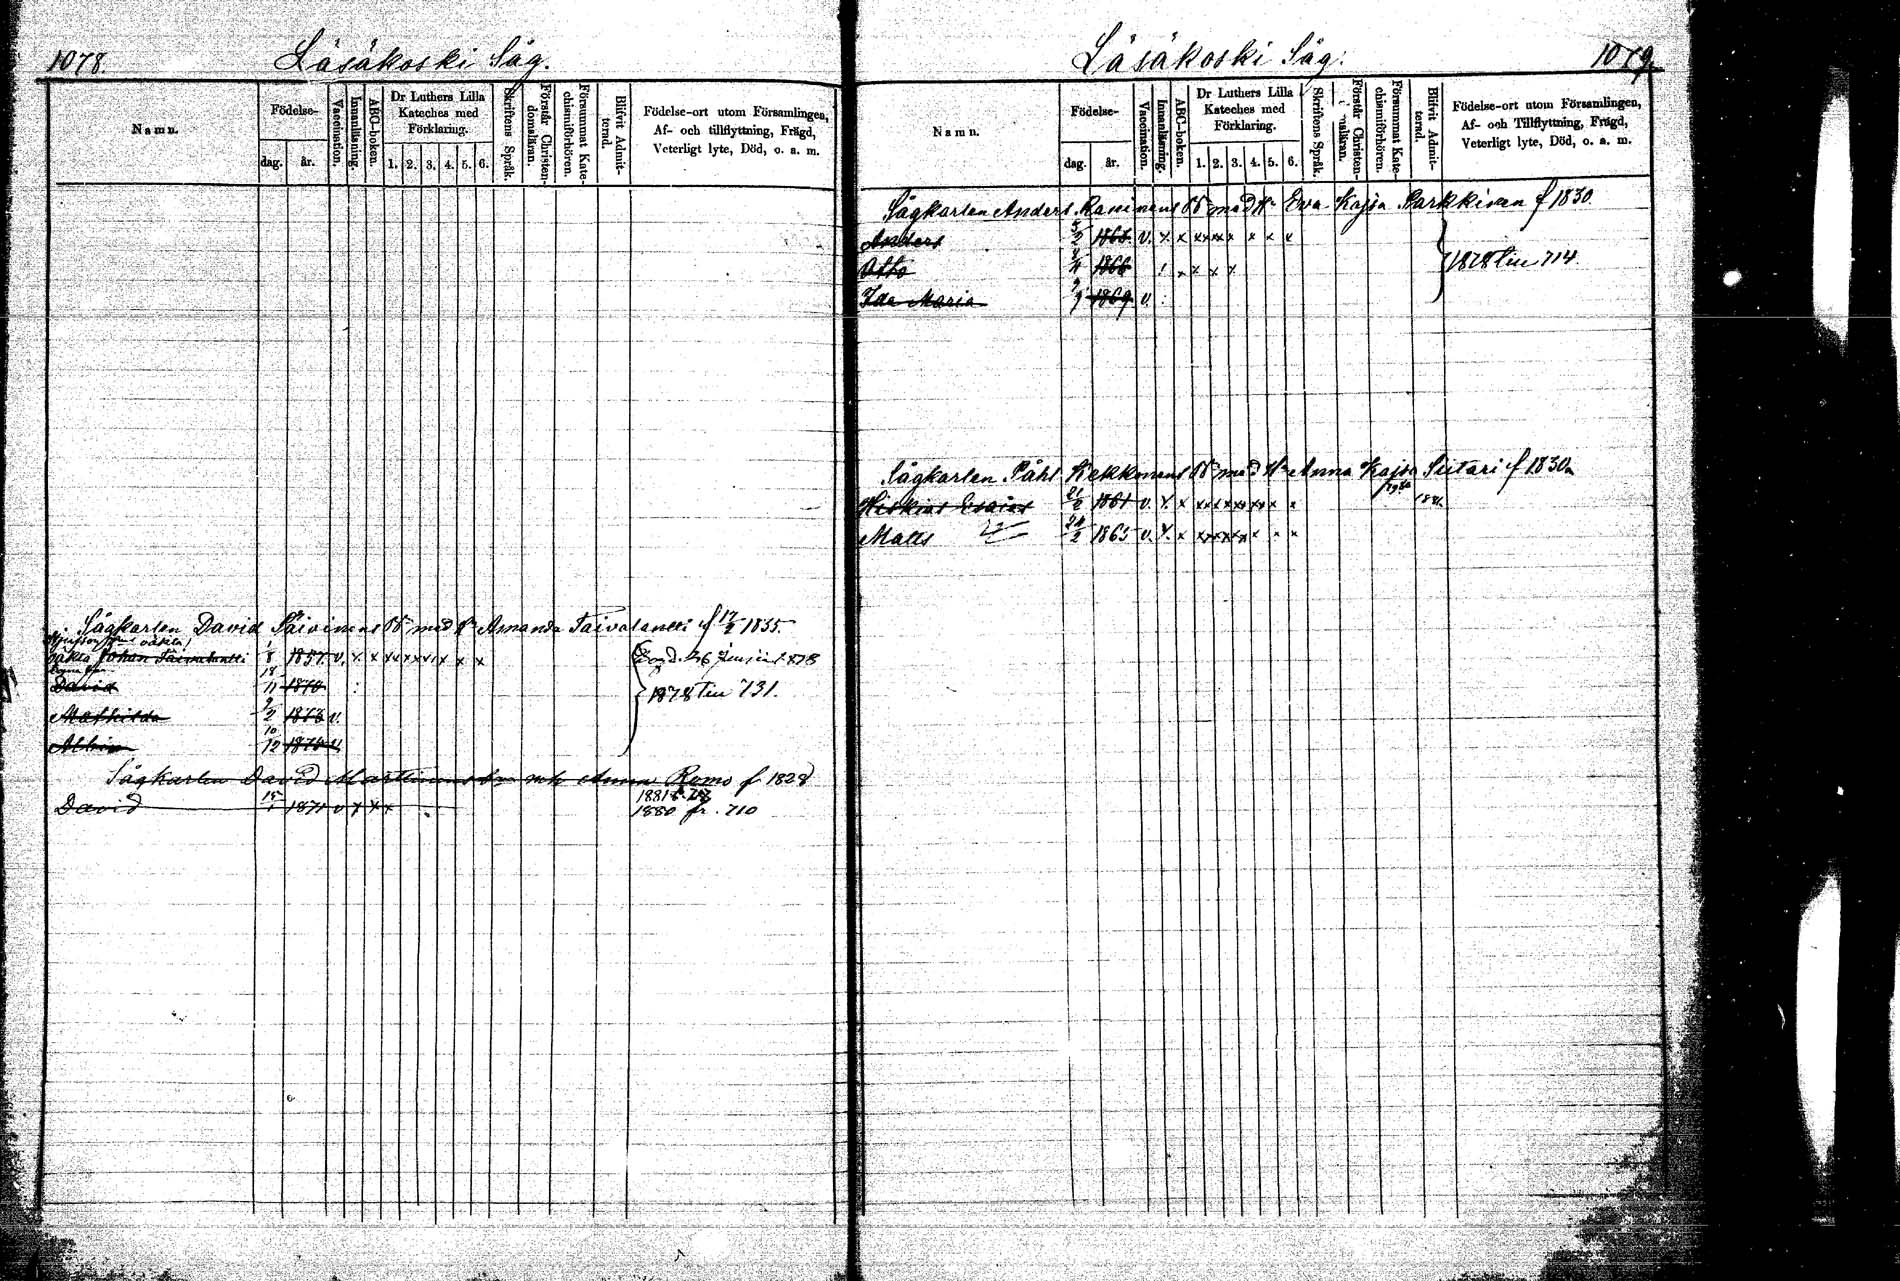 1078. Läsäkoski Såg.
Namn. Födelse- dag. år. Vaccination. Innanläsning. ABC-boken. Dr Luthers Lilla Kateches med Förklaring. 1. 2. 3. 4. 5. 6. Skriftens Språk. Förstår Christendomsläran. Försummat Katechismiförhören. Blifvit Admitterad. Födelse-ort utom Församlingen, Af- och tillflyttning, Frägd, Veterligt lyte, Död, o. a. m.
Sågkarlen David Päivinens med Amanda Taivalantti f 17/2 1835.
Johan Taivalantti 1/8 1857. v. x x x x x x x x x 1878
David 18/11 1870 :
1878 till 731.
Mathilda 9/2 1873 v.
Albin 10/12 1874 v.
Sågkarlen David Marttinens Anna Romo f 1828
1881
David 15/1 1871 v x x x 1880 fr. 710
Läsäkoski Såg. 1079.
Namn. Födelse- dag. år. Vaccination. Innanläsning. ABC-boken. Dr Luthers Lilla Kateches med Förklaring. 1. 2. 3. 4. 5. 6. Skriftens Språk. Förstår Christendomsläran. Försummat Katechismiförhören. Blifvit Admitterad. Födelse-ort utom Församlingen, Af- och Tillflyttning, Frägd, Veterligt lyte, Död, o. a. m.
Sågkarlen Anders med Eva Kajsa Parkkinen f 1830.
Anders 5/2 1863. v. x x x x x x x x x
Otto 1866 x x x x
1878 till 714
Ida Maria 1869. v. :
Sågkarlen Påhl Kekkonens med Anna Kajsa Siitari f 1830
Hiskias Esaias 21/2 1861 v. x x x x x x x x x x 1881
Matts 24/2 1865 v. x. x x x x x x x x x